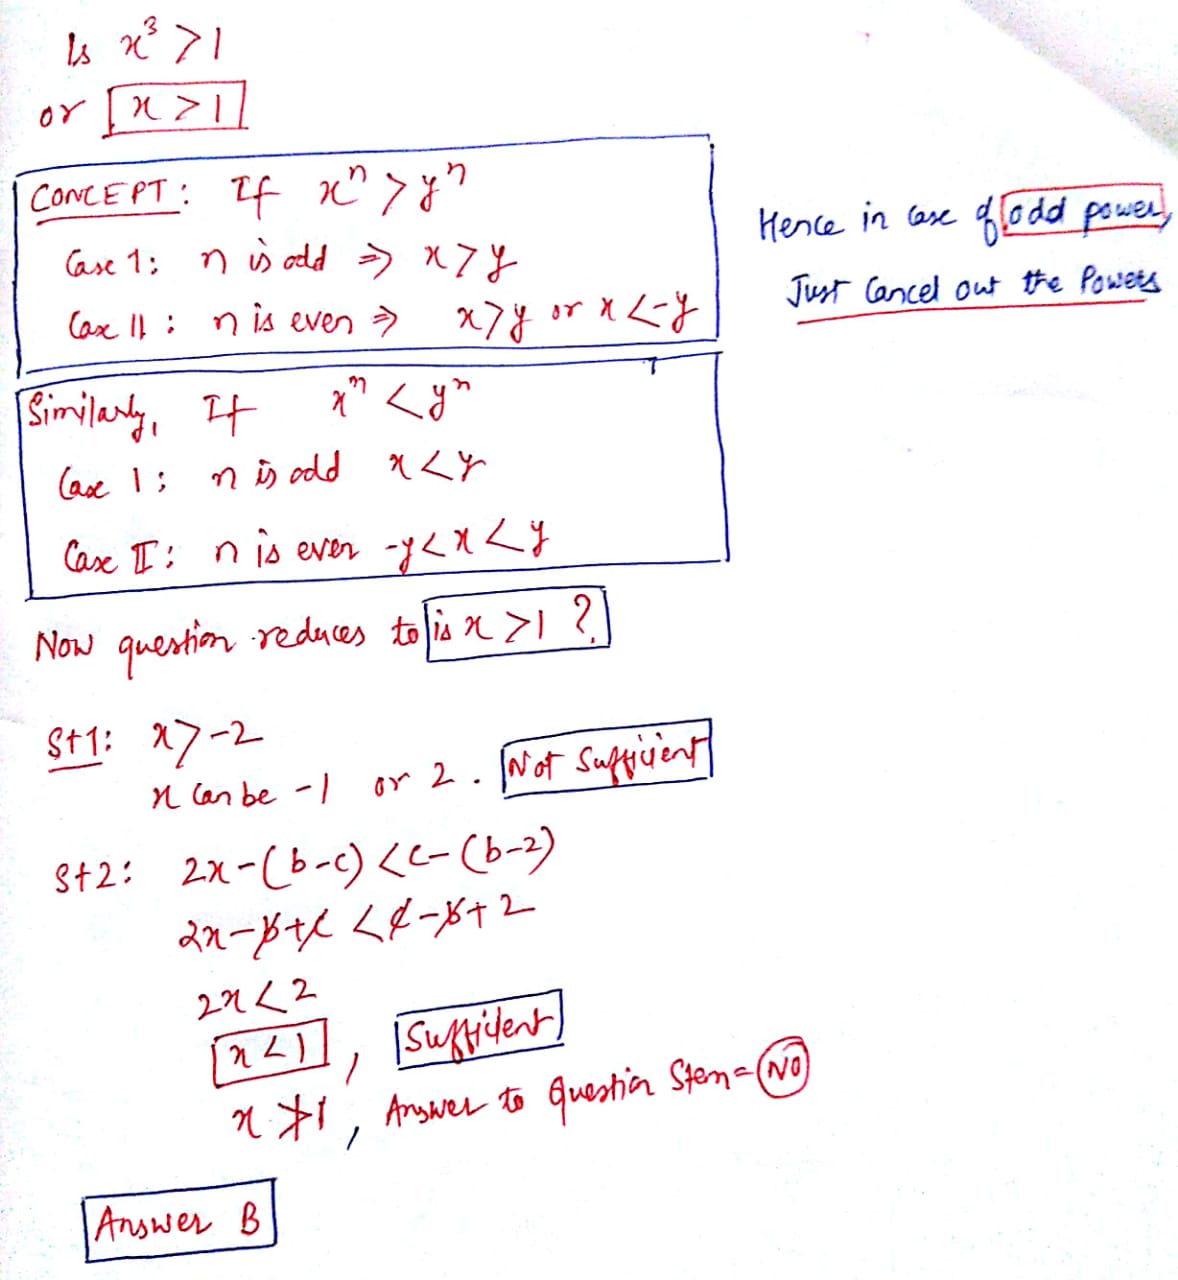 Is x³ > 1
or x > 1
CONCEPT: If xⁿ > yⁿ
Case 1: n is odd ⇒ x > y
Case II: n is even ⇒ x > y or x < -y
Hence in case of odd power,
Just Cancel out the Powers
Similarly, If xⁿ < yⁿ
Case 1: n is odd x < y
Case II: n is even -y < x < y
Now question reduces to is x > 1 ?
St1: x > -2
x can be -1 or 2. Not Sufficient
St2: 2x - (b-c) < c - (b-2)
2x - b + c < c - b + 2
2x < 2
x < 1, Sufficient
x ≯ 1, Answer to Question Stem = NO
Answer B